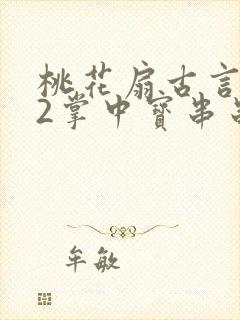 桃花扇古言
2掌中寶串
牟敏